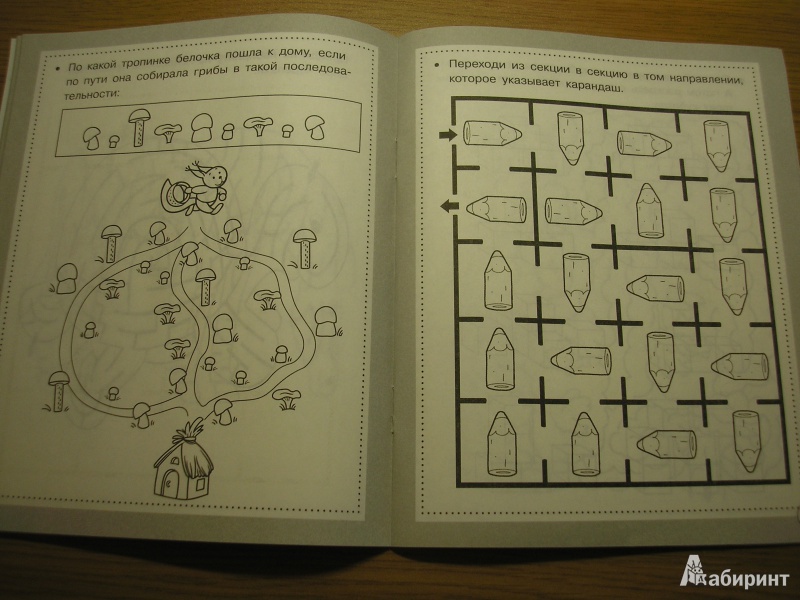 • По какой тропинке белочка пошла к дому, если
по пути она собирала грибы в такой последова-
тельности:
• Переходи из секции в секцию в том направлении,
которое указывает карандаш.
Лабиринт